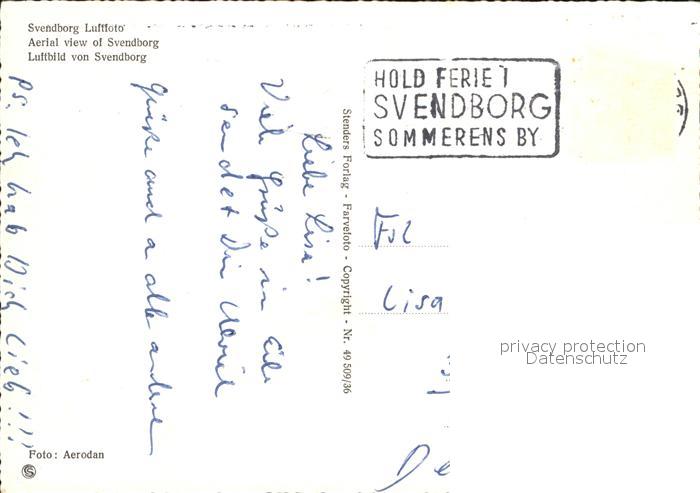 Svendborg Luftfoto
Aerial view of Svendborg
Luftbild von Svendborg
HOLD FERIE I
SVENDBORG
SOMMERENS BY
Liebe Lisa!
Viele Grüße in Eile
sendet Dir
Grüße and a alle andere
PS. Ich hab Dich lieb!!!
Stenders Forlag - Farvefoto - Copyright - Nr. 49 509/36
Frl
Lisa
privacy protection
Datenschutz
De
Foto: Aerodan